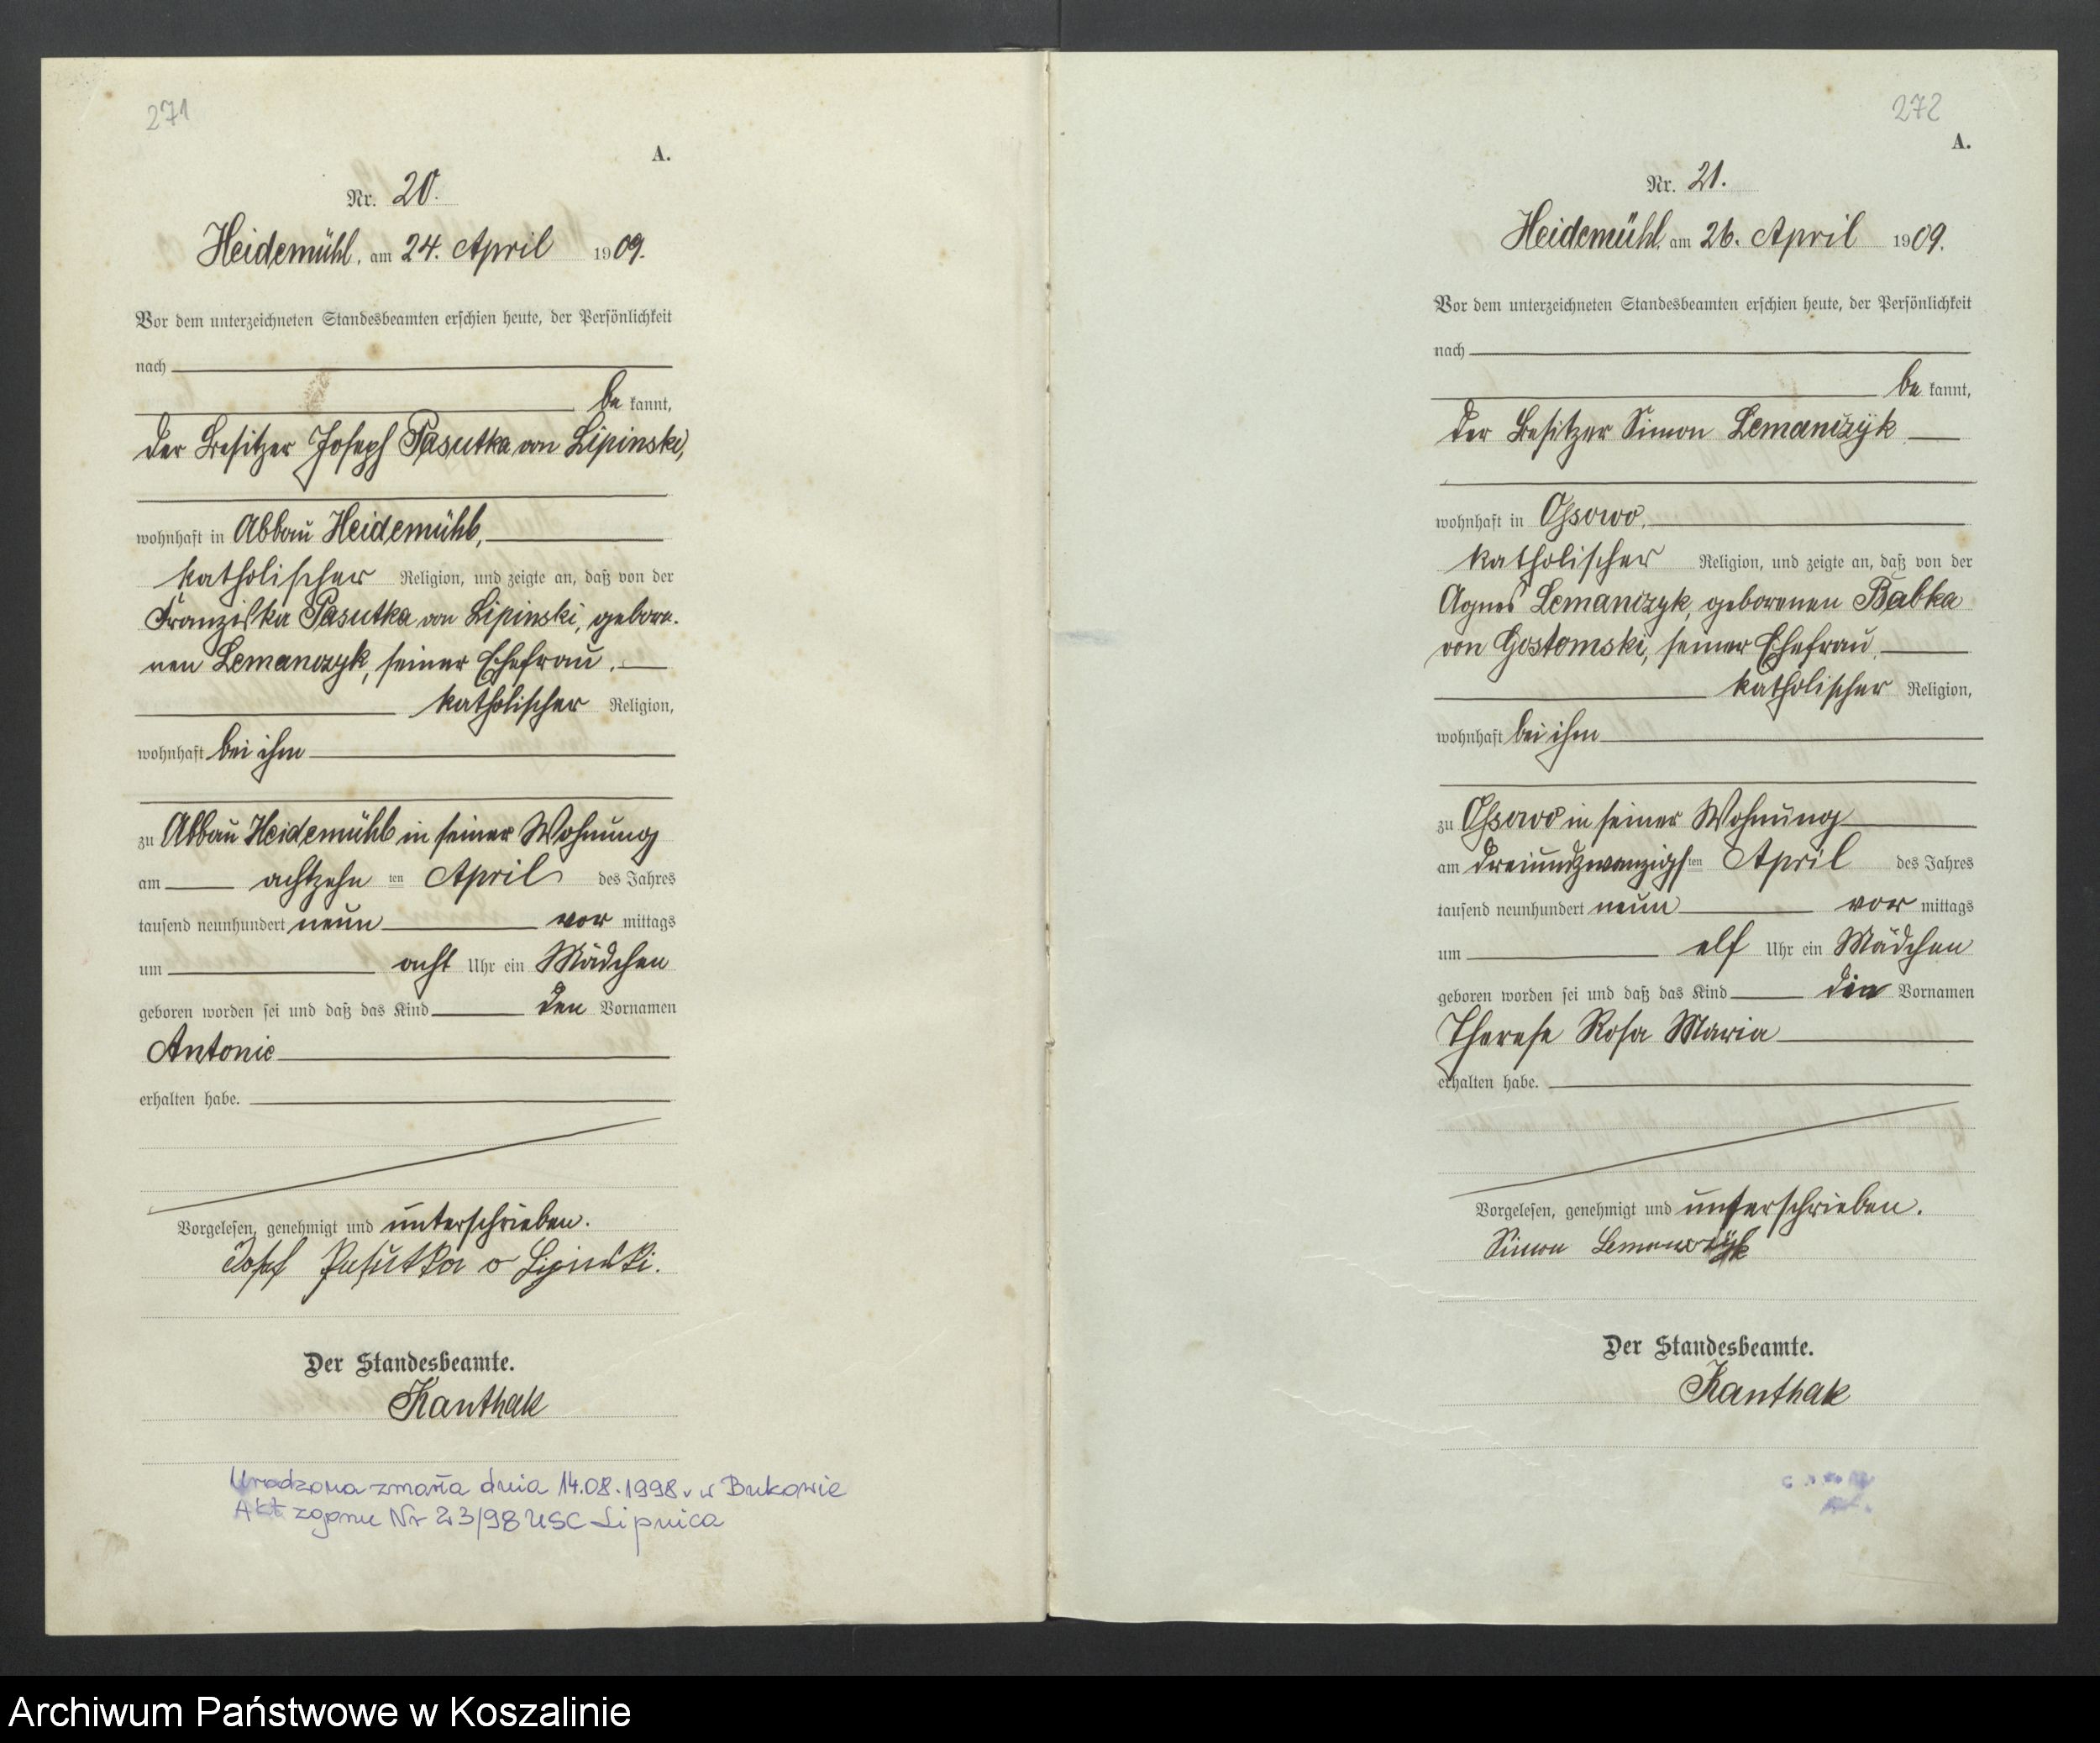 271
A.
Nr. 20.
Heidemühl, am 24. April 1909.
Vor dem unterzeichneten Standesbeamten erschien heute, der Persönlichkeit
nach
be kannt,
der Besitzer Joseph Pasutka von Lipinski,
wohnhaft in Abbau Heidemühl,
katholischer Religion, und zeigte an, daß von der
Franziska Pasutka von Lipinski, gebore-
nen Lemanczyk, seiner Ehefrau,
katholischer Religion,
wohnhaft bei ihm
zu Abbau Heidemühl in seiner Wohnung
am achtzehn ten April des Jahres
tausend neunhundert neun vor mittags
um acht Uhr ein Mädchen
geboren worden sei und daß das Kind den Vornamen
Antonie
erhalten habe.
Vorgelesen, genehmigt und unterschrieben.
Josef Pasutka v Lipinski.
Der Standesbeamte.
Kanthak
Urodzona zmarła dnia 14.08.1998 r w Bukowie
Akt zgonu Nr 23/98 USC Lipnica
272
A.
Nr. 21.
Heidemühl, am 26. April 1909.
Vor dem unterzeichneten Standesbeamten erschien heute, der Persönlichkeit
nach
be kannt,
der Besitzer Simon Lemanczyk
wohnhaft in Ossowo,
katholischer Religion, und zeigte an, daß von der
Agnes Lemanczyk, geborenen Babka
von Gostomski, seiner Ehefrau,
katholischer Religion,
wohnhaft bei ihm
zu Ossowo in seiner Wohnung
am dreiundzwanzigs ten April des Jahres
tausend neunhundert neun vor mittags
um elf Uhr ein Mädchen
geboren worden sei und daß das Kind die Vornamen
Therese Rosa Maria
erhalten habe.
Vorgelesen, genehmigt und unterschrieben.
Simon Lemanczyk
Der Standesbeamte.
Kanthak
Archiwum Państwowe w Koszalinie